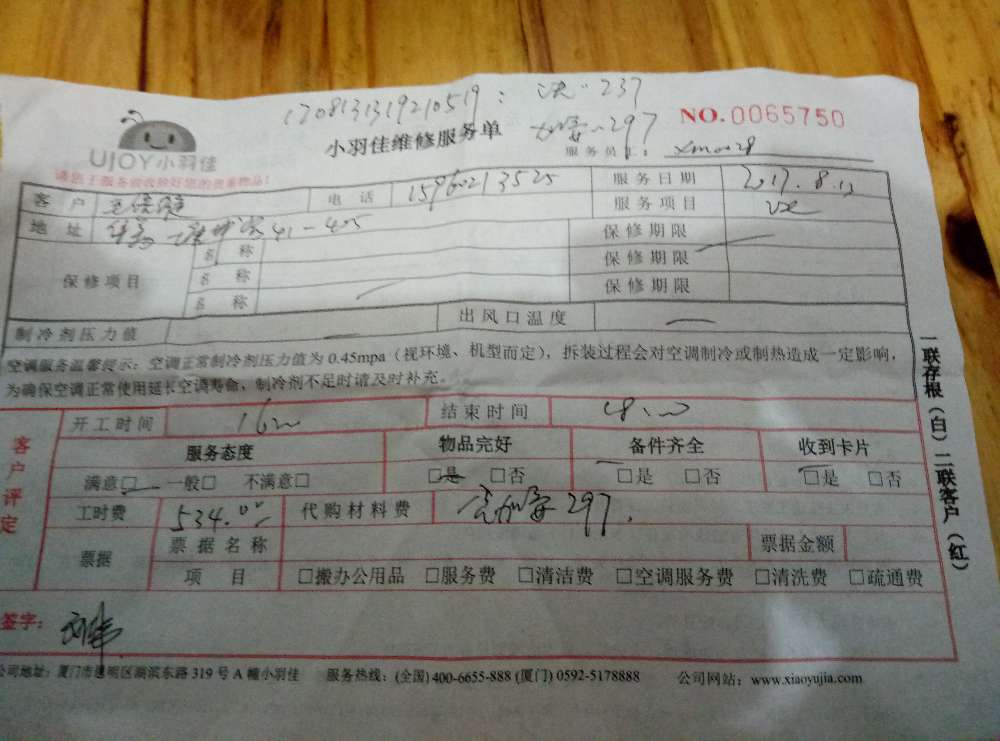 1708131319210519: 洗·237
NO.0065750
UJOY小羽佳
小羽佳维修服务单
加氟:297
服务员工: xm0028
请您于服务前收捡好您的贵重物品!
客户 电话 15960213525 服务日期 2017.8.13
地址 41-405 服务项目
保修项目 名称 保修期限
名称 保修期限
名称 保修期限
制冷剂压力值 出风口温度
空调服务温馨提示:空调正常制冷剂压力值为0.45mpa(视环境、机型而定),拆装过程会对空调制冷或制热造成一定影响,
为确保空调正常使用延长空调寿命,制冷剂不足时请及时补充。
客户评定
开工时间 结束时间
服务态度 物品完好 备件齐全 收到卡片
满意□ 一般□ 不满意□ □是 □否 □是 □否 □是 □否
工时费 534.00 代购材料费 297.
票据 票据名称 票据金额
项目 □搬办公用品 □服务费 □清洁费 □空调服务费 □清洗费 □疏通费
签字:
公司地址:厦门市思明区湖滨东路319号A幢小羽佳 服务热线:(全国)400-6655-888 (厦门) 0592-5178888 公司网站:www.xiaoyujia.com
一联存根(白)二联客户(红)